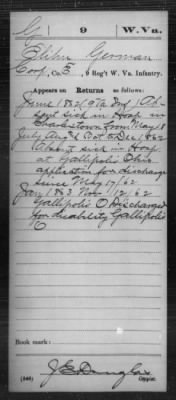 G | 9 | W. Va.
Elihu German
Corp, Co. B, 9 Reg't W. Va. Infantry.
Appears on Returns as follows:
June 1862 (9th Inf) Ab-
sent sick in Hosp in
Charlestown from May 18
July Aug & Oct to Dec 1862
Absent sick in Hosp
at Gallipolis Ohio
application for discharge
since May 17/62
Jan 1863 Nov 12/62
Gallipolis O. Discharged
for disability Gallipolis
O
Book mark:
J E Douglas
(546) Copyist.